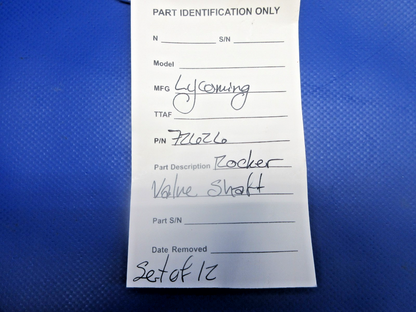 PART IDENTIFICATION ONLY
N S/N
Model
MFG Lycoming
TTAF
P/N 72626
Part Description Rocker
Valve Shaft
Part S/N
Date Removed
Set of 12